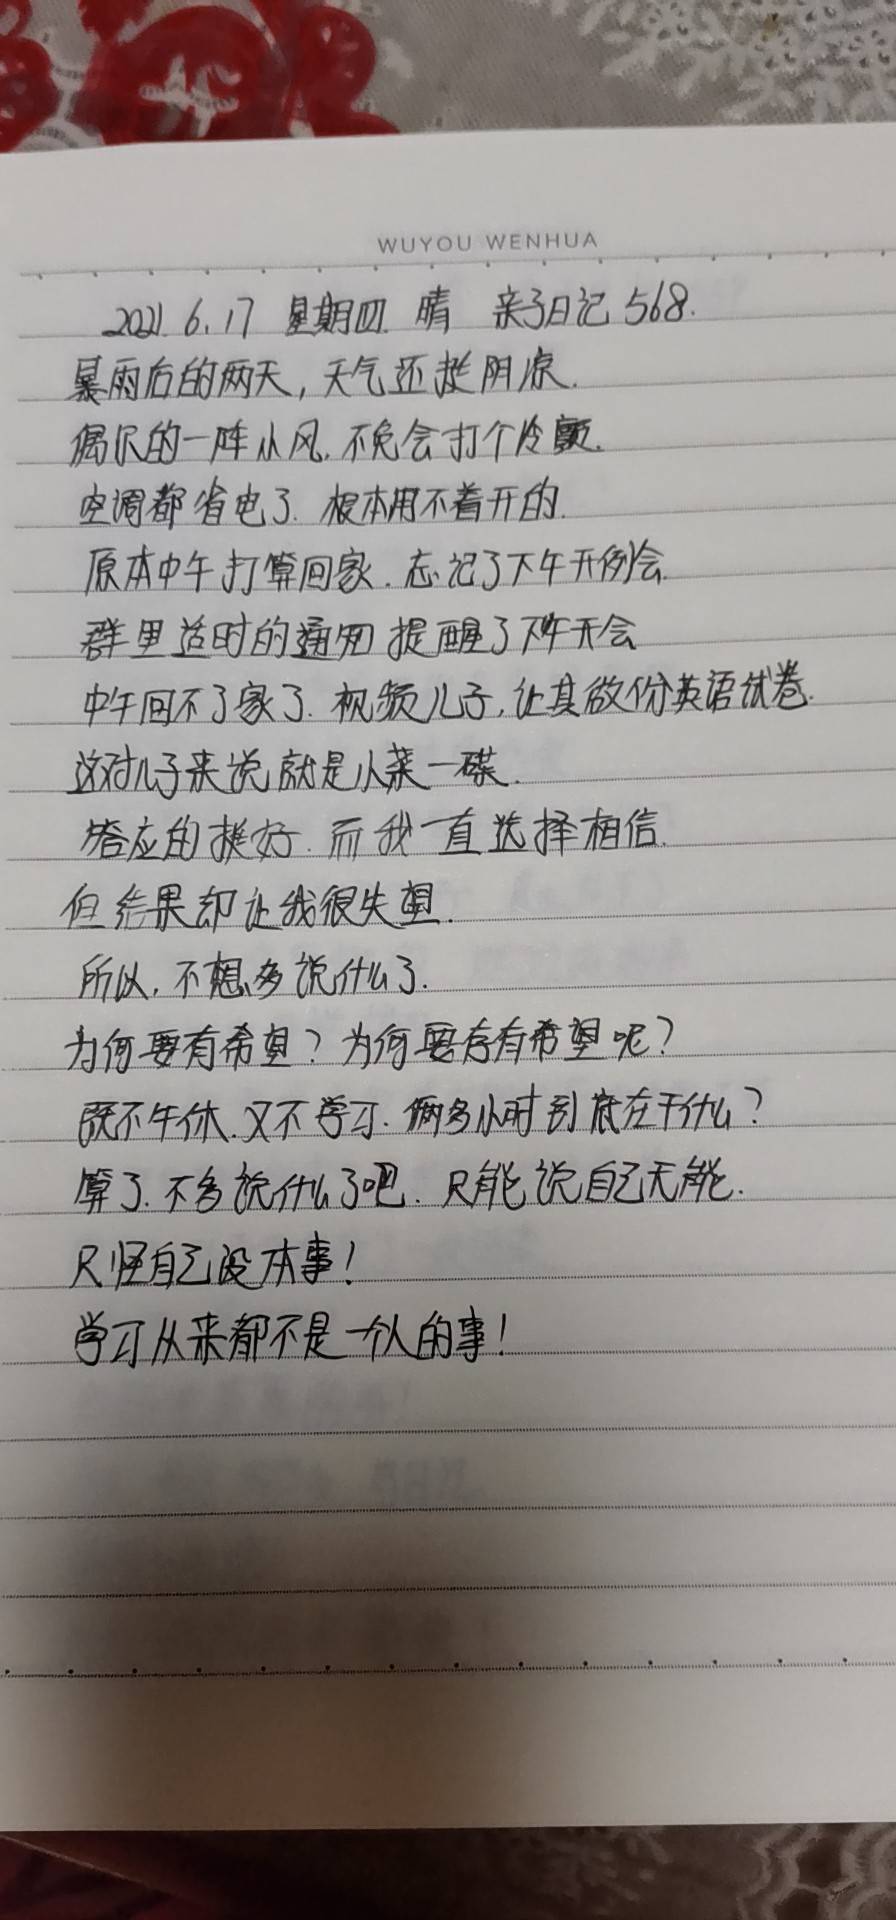 WUYOU WENHUA
2021.6.17 星期四 晴 亲子日记 568.
暴雨后的两天,天气还挺阴凉.
偶尔的一阵小风.不免会打个冷颤.
空调都省电了.根本用不着开的.
原本中午打算回家.忘记了下午开例会
群里适时的通知提醒了下午开会
中午回不了家了.视频儿子,让其做份英语试卷.
这对儿子来说就是小菜一碟.
答应的挺好.而我一直选择相信.
但结果却让我很失望.
所以,不想多说什么了.
为何要有希望?为何要存有希望呢?
既不午休.又不学习.俩多小时到底在干什么?
算了.不多说什么了吧.只能说自己无能.
只怪自己没本事!
学习从来都不是一个人的事!